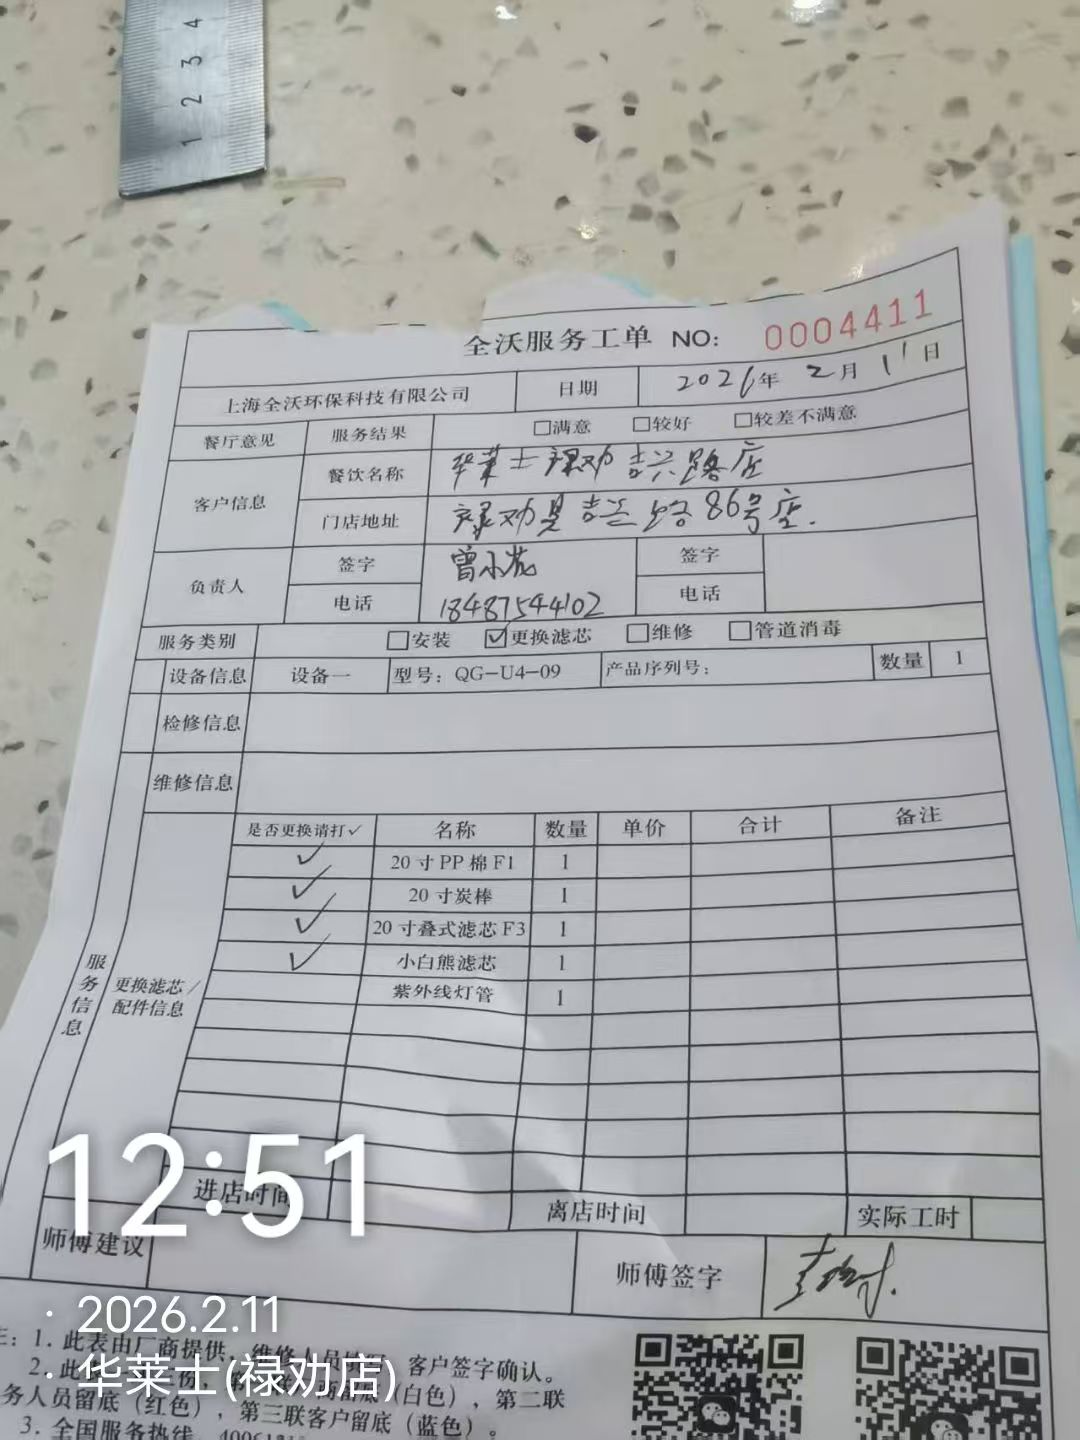 1 2 3 4
全沃服务工单 NO: 0004411
上海全沃环保科技有限公司 日期 2026年 2月 11日
餐厅意见 服务结果 □满意 □较好 □较差不满意
客户信息 餐饮名称 华莱士禄劝吉兴路店
门店地址 禄劝县吉兴路86号店.
负责人 签字 曾小花 签字
电话 18487544102 电话
服务类别 □安装 ☑更换滤芯 □维修 □管道消毒
设备信息 设备一 型号：QG-U4-09 产品序列号： 数量 1
检修信息
维修信息
服务信息 更换滤芯/配件信息
是否更换请打✓ 名称 数量 单价 合计 备注
✓ 20寸PP棉F1 1
✓ 20寸炭棒 1
✓ 20寸叠式滤芯F3 1
✓ 小白熊滤芯 1
紫外线灯管 1
进店时间 离店时间 实际工时
师傅建议 师傅签字
12:51
2026.2.11
华莱士(禄劝店)
1. 此表由厂商提供，维修人员填写，客户签字确认。
2. 此 底（白色），第二联
务人员留底（红色），第三联客户留底（蓝色）。
3. 全国服务热线